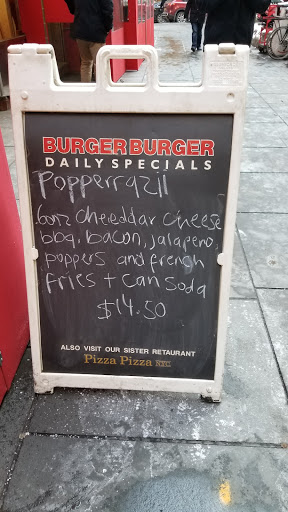 BURGER BURGER
DAILY SPECIALS
Popperrazii
6onz cheeddar cheese
bbq, bacon, jalapeno,
poppers and french
fries + can soda
$14.50
ALSO VISIT OUR SISTER RETAURANT
Pizza Pizza NYC